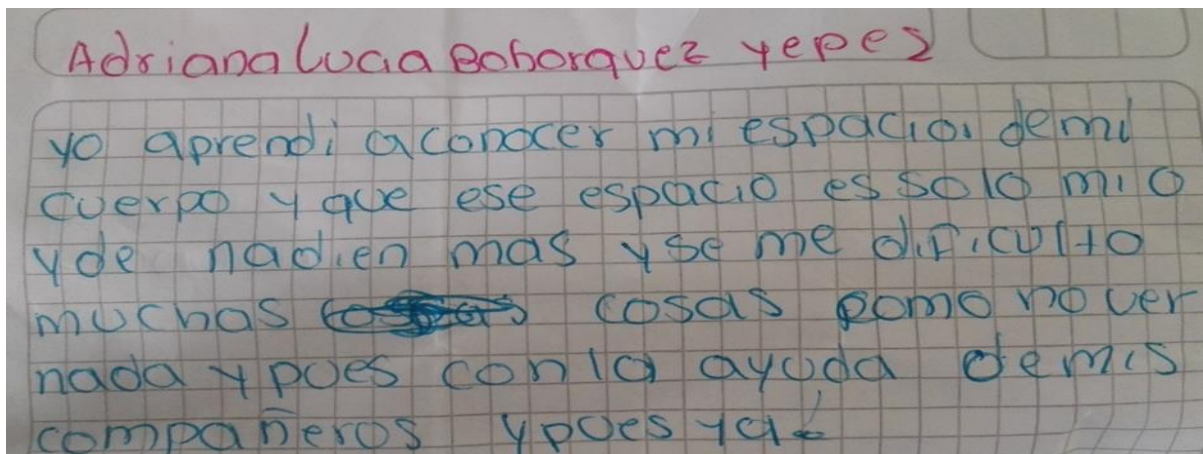 Adriana Lucia Bohorquez yepez
yo aprendi aconocer mi espacio, demi
cuerpo y que ese espacio es solo mio
yde nadien mas yse me dificulto
muchas cosas como no ver
nada y pues conla ayuda demis
compañeros ypues ya!